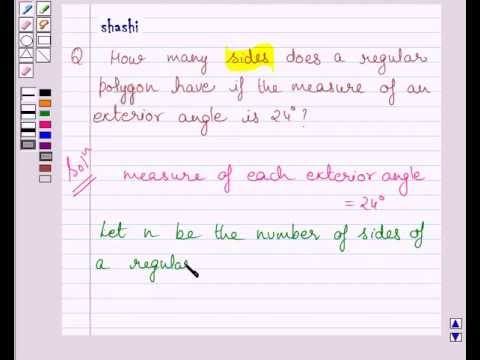 shashi
Q How many sides does a regular
polygon have if the measure of an
exterior angle is 24°?
Solⁿ measure of each exterior angle
= 24°
Let n be the number of sides of
a regular